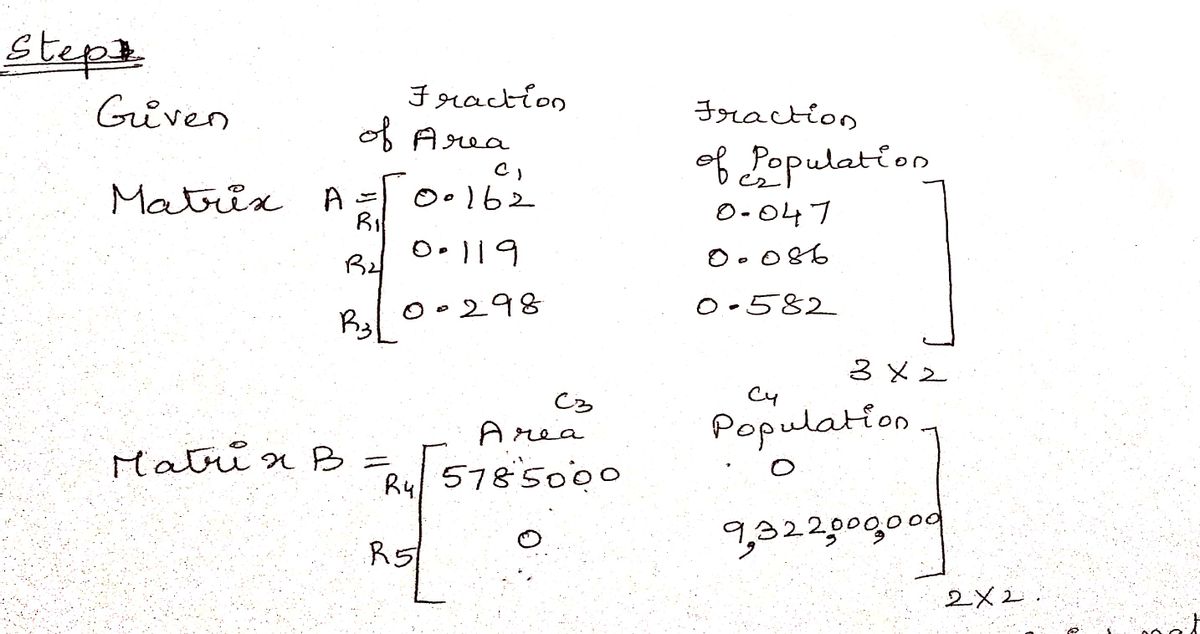 Step
Given
Fraction of Area
Fraction of Population
Matrix A =
C1 C2
R1 0.162 0.047
R2 0.119 0.086
R3 0.298 0.582
3 X 2
C3 C4
Area Population
Matrix B =
R4 5785000 0
R5 0 9,322,000,000
2X2.